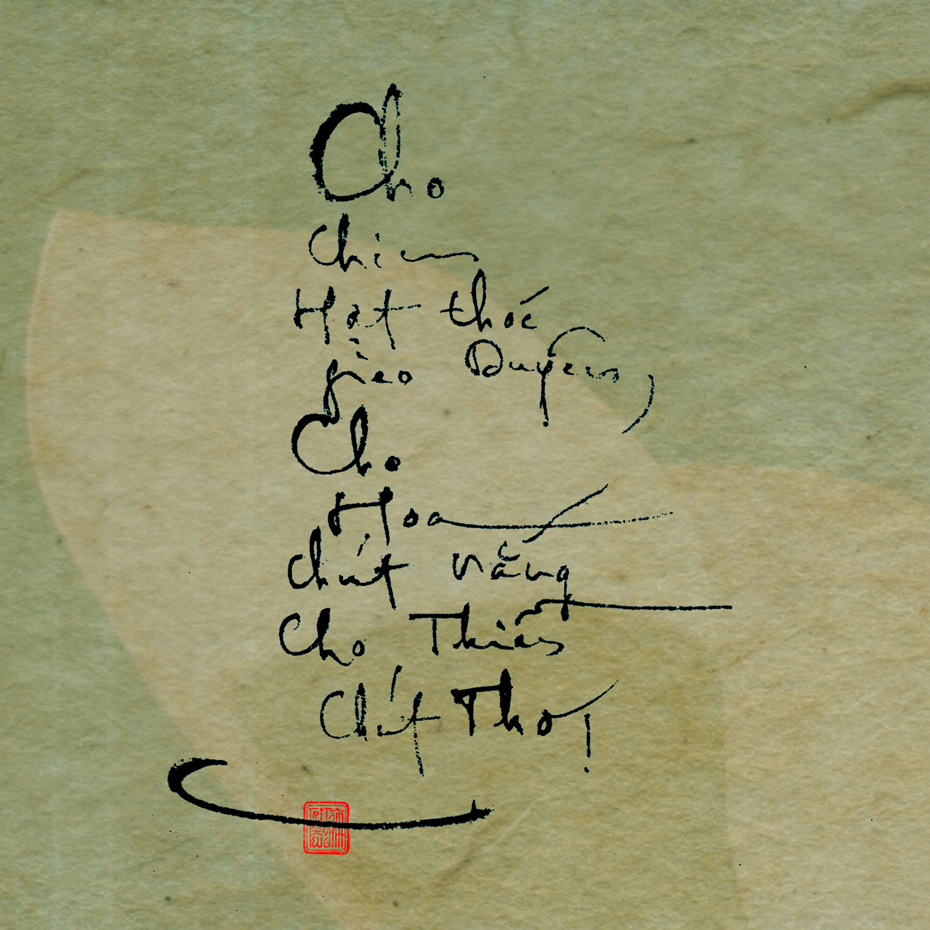 Cho
Chim
Hạt thóc
gieo Duyên,
Cho
Hoa
chút nắng
Cho Thiền
Chút Thơ!